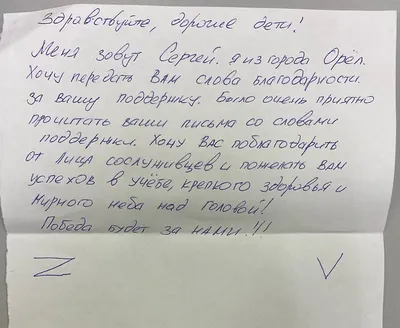 Здравствуйте, дорогие дети!
Меня зовут Сергей. я из города Орёл.
Хочу передать Вам слова благодарности
за вашу поддержку. Было очень приятно
прочитать ваши письма со словами
поддержки. Хочу Вас поблагодарить
от лица сослуживцев и пожелать Вам
успехов в учёбе, крепкого здоровья и
мирного неба над головой!
Победа будет за нами!!!
Z V